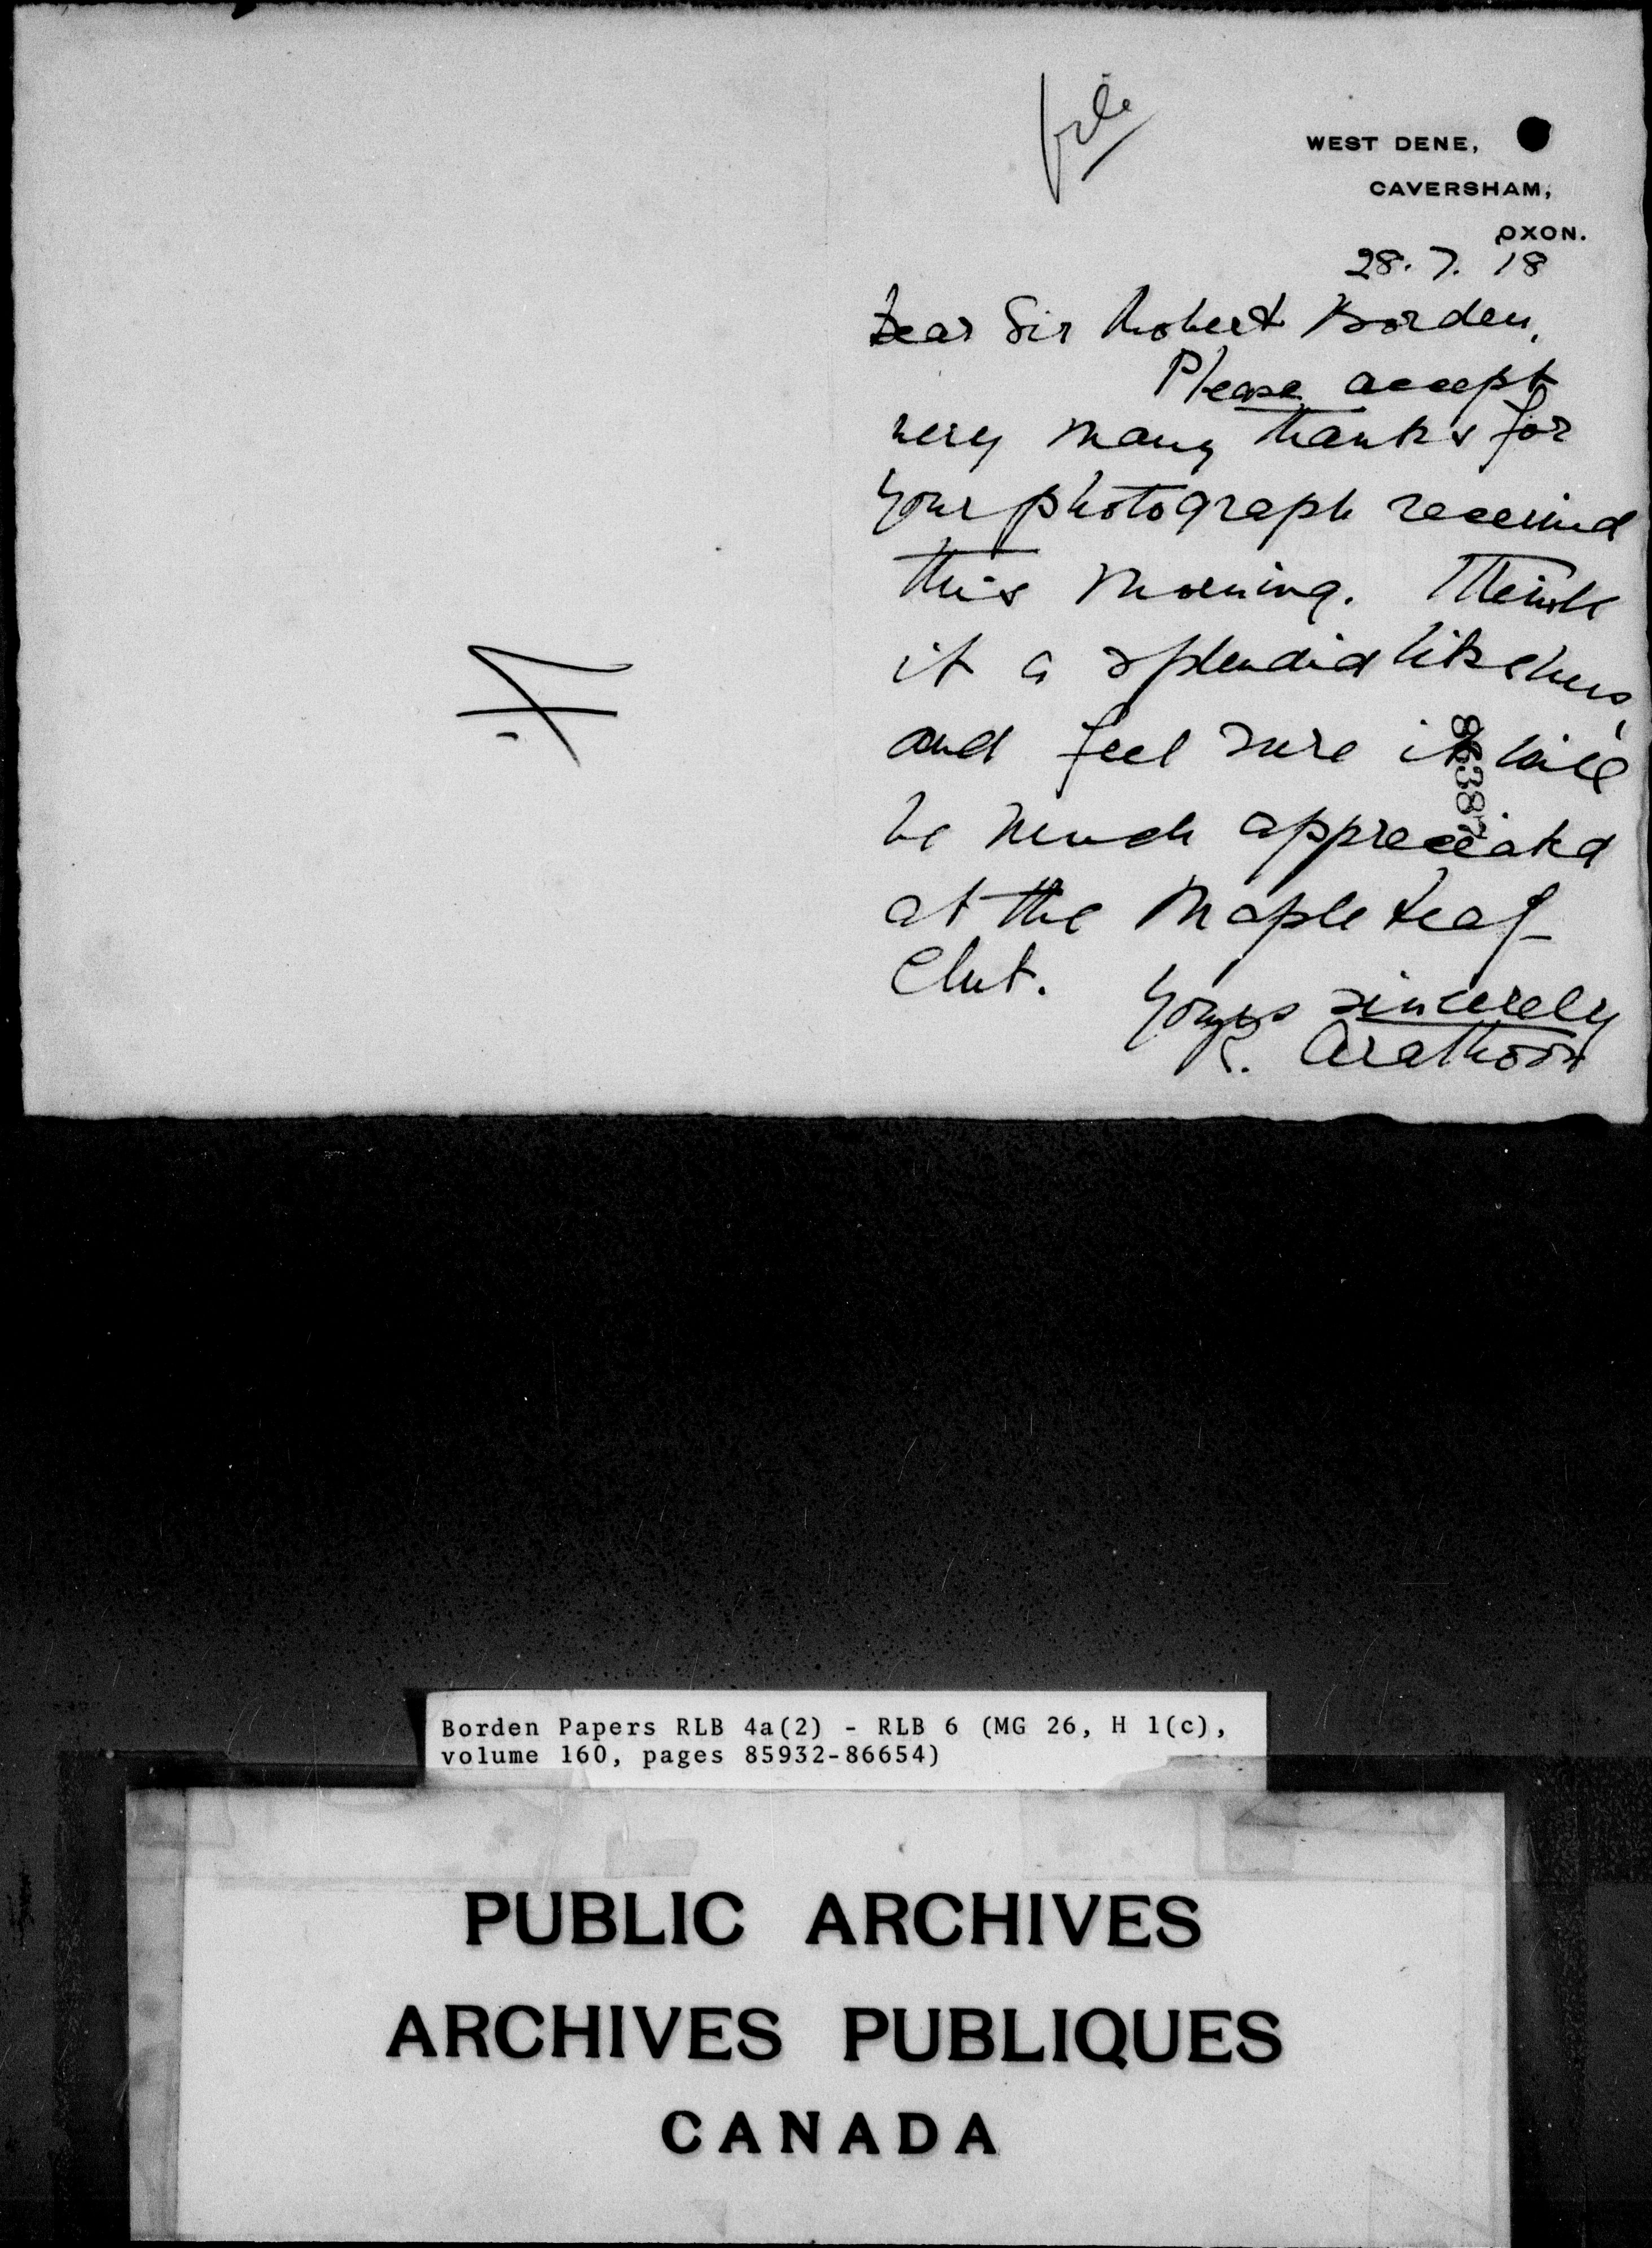 file
WEST DENE,
CAVERSHAM,
OXON.
28. 7. 18
Dear Sir Robert Borden,
Please accept
very many thanks for
your photograph received
this morning. Think
it a splendid likeness,
and feel sure it will
be much appreciated
at the Maple Leaf
Club.
Yours sincerely
R. Arathoon
86387
Borden Papers RLB 4a(2) - RLB 6 (MG 26, H 1(c),
volume 160, pages 85932-86654)
PUBLIC ARCHIVES
ARCHIVES PUBLIQUES
CANADA